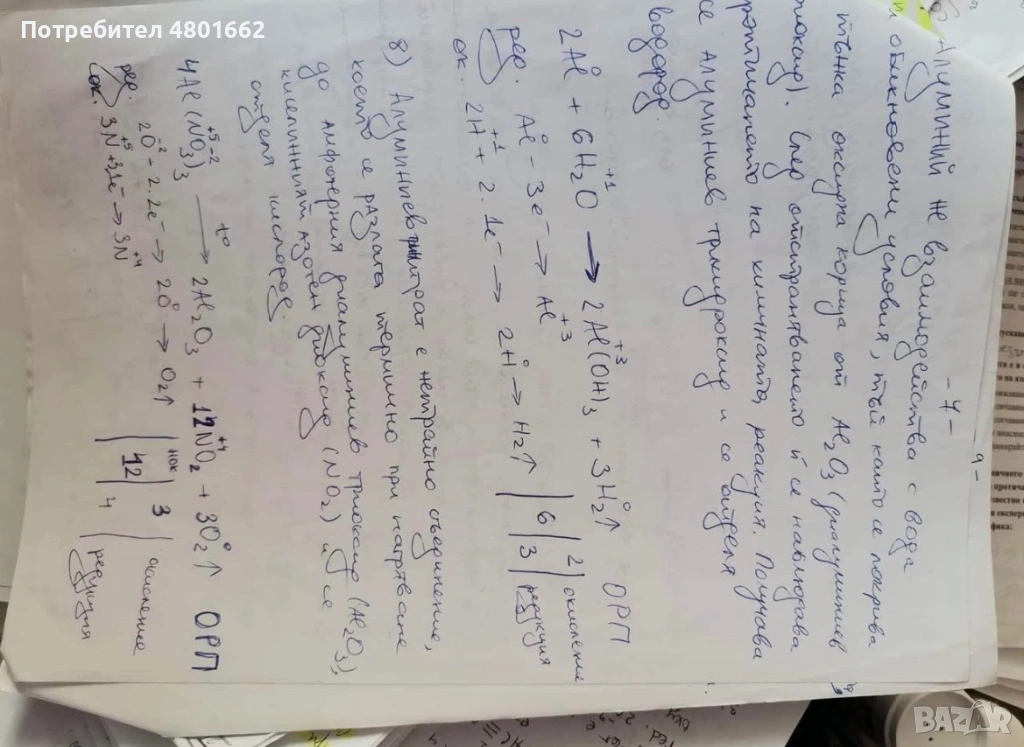 Потребител 4801662
- 7 -
Алуминий не взаимодейства с вода
при обикновени условия, тъй като се покрива
тънка оксидна корица от Al2O3 (диалуминиев
триоксид). След отстраняването ѝ се наблюдава
протичането на химичната реакция. Получава
се Алуминиев трихидроксид и се отделя
водород.
2Al⁰ + 6H₂⁺¹O → 2Al⁺³(OH)₃ + 3H₂⁰↑ ОРП
ред. Al⁰ - 3e⁻ → Al⁺³ | 2 | окисление
ок. 2H⁺¹ + 2.1e⁻ → 2H⁰ → H₂↑ | 6 | 3 | редукция
8) Алуминиев нитрат е нетрайно съединение,
което се разлага термично при нагряване
до амфотерния диалуминиев триоксид (Al2O3),
киселинният азотен диоксид (NO2) и се
отделя кислород.
4Al(N⁺⁵O⁻²₃)₃ →t° 2Al₂O₃ + 12N⁺⁴O₂ + 3O₂⁰↑ ОРП
ред. 2O⁻² - 2.2e⁻ → 2O⁰ → O₂↑ | НОК | 3 | окисление
ок. 3N⁺⁵ + 3.1e⁻ → 3N⁺⁴ | 12 | 4 | редукция
BAZAR